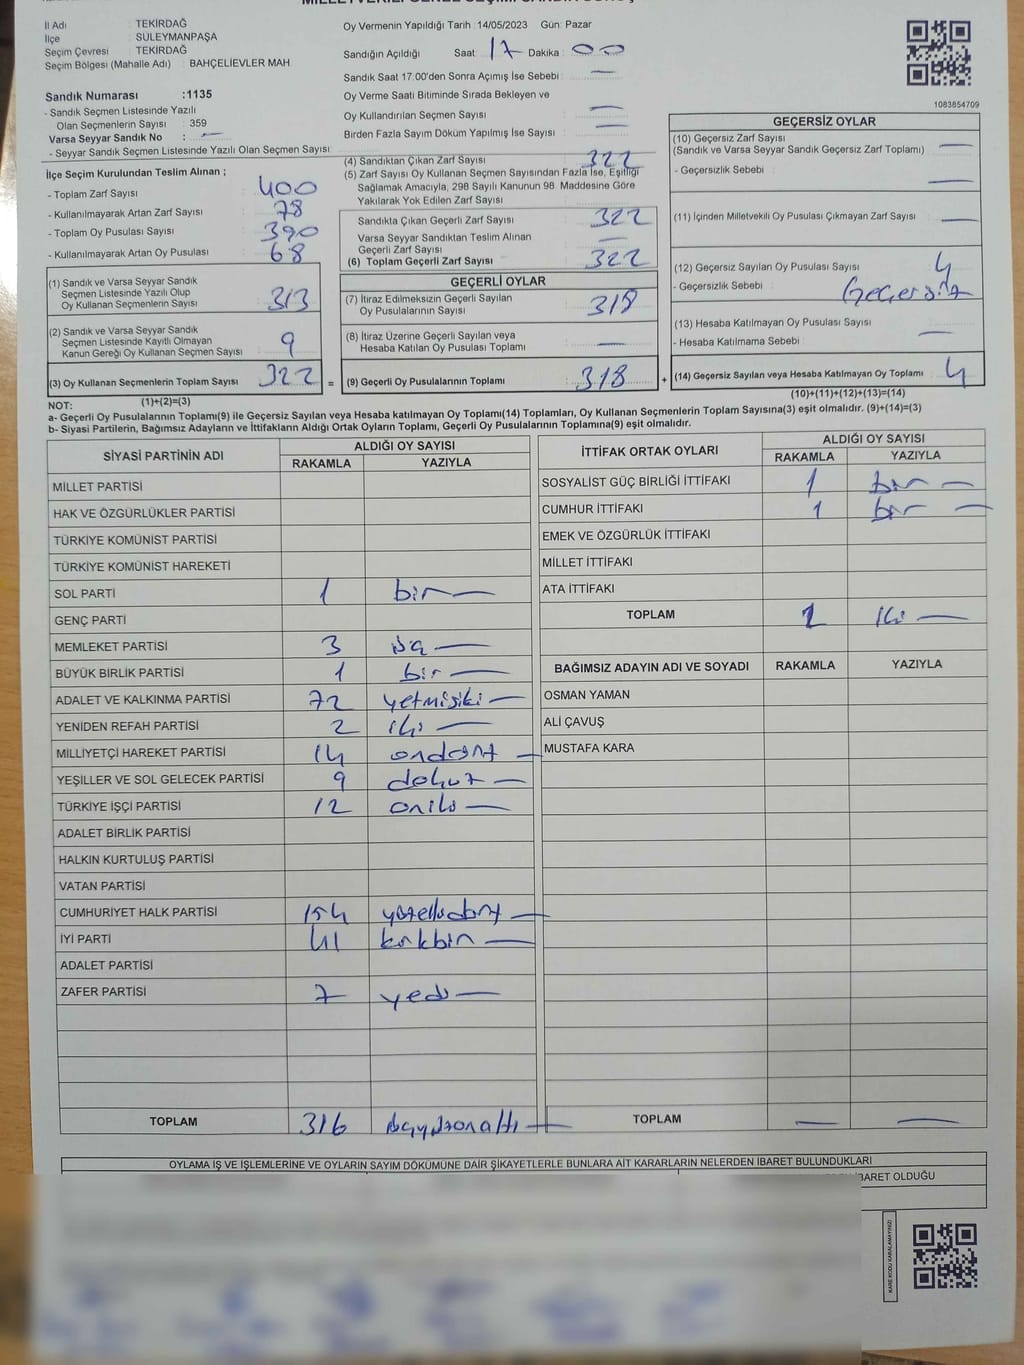 İl Adı : TEKİRDAĞ
İlçe : SÜLEYMANPAŞA
Seçim Çevresi : TEKİRDAĞ
Seçim Bölgesi (Mahalle Adı) : BAHÇELİEVLER MAH.
Sandık Numarası :1135
- Sandık Seçmen Listesinde Yazılı
Olan Seçmenlerin Sayısı : 359
Varsa Seyyar Sandık No : —
- Seyyar Sandık Seçmen Listesinde Yazılı Olan Seçmen Sayısı:
Oy Vermenin Yapıldığı Tarih :14/05/2023 Gün: Pazar
Sandığın Açıldığı Saat: 17 Dakika: 00
Sandık Saat 17:00'den Sonra Açımış İse Sebebi : —
Oy Verme Saati Bitiminde Sırada Bekleyen ve
Oy Kullandırılan Seçmen Sayısı : —
Birden Fazla Sayım Döküm Yapılmış İse Sayısı : —
1083854709
İlçe Seçim Kurulundan Teslim Alınan ;
- Toplam Zarf Sayısı : 400
- Kullanılmayarak Artan Zarf Sayısı : 78
- Toplam Oy Pusulası Sayısı : 390
- Kullanılmayarak Artan Oy Pusulası : 68
(1) Sandık ve Varsa Seyyar Sandık
Seçmen Listesinde Yazılı Olup
Oy Kullanan Seçmenlerin Sayısı : 313
(2) Sandık ve Varsa Seyyar Sandık
Seçmen Listesinde Kayıtlı Olmayan
Kanun Gereği Oy Kullanan Seçmen Sayısı : 9
(3) Oy Kullanan Seçmenlerin Toplam Sayısı : 322 =
(1)+(2)=(3)
(4) Sandıktan Çıkan Zarf Sayısı : 322
(5) Zarf Sayısı Oy Kullanan Seçmen Sayısından Fazla İse, Eşitliği
Sağlamak Amacıyla, 298 Sayılı Kanunun 98. Maddesine Göre
Yakılarak Yok Edilen Zarf Sayısı :
Sandıkta Çıkan Geçerli Zarf Sayısı : 322
Varsa Seyyar Sandıktan Teslim Alınan
Geçerli Zarf Sayısı : —
(6) Toplam Geçerli Zarf Sayısı : 322
GEÇERLİ OYLAR
(7) İtiraz Edilmeksizin Geçerli Sayılan
Oy Pusulalarının Sayısı : 318
(8) İtiraz Üzerine Geçerli Sayılan veya
Hesaba Katılan Oy Pusulası Toplamı : —
(9) Geçerli Oy Pusulalarının Toplamı : 318 +
GEÇERSİZ OYLAR
(10) Geçersiz Zarf Sayısı :
(Sandık ve Varsa Seyyar Sandık Geçersiz Zarf Toplamı) —
- Geçersizlik Sebebi : —
(11) İçinden Milletvekili Oy Pusulası Çıkmayan Zarf Sayısı : —
(12) Geçersiz Sayılan Oy Pusulası Sayısı : 4
- Geçersizlik Sebebi : Geçersiz
(13) Hesaba Katılmayan Oy Pusulası Sayısı : —
- Hesaba Katılmama Sebebi :
(14) Geçersiz Sayılan veya Hesaba Katılmayan Oy Toplamı : 4
(10)+(11)+(12)+(13)=(14)
NOT:
a- Geçerli Oy Pusulalarının Toplamı(9) ile Geçersiz Sayılan veya Hesaba katılmayan Oy Toplamı(14) Toplamları, Oy Kullanan Seçmenlerin Toplam Sayısına(3) eşit olmalıdır. (9)+(14)=(3)
b- Siyasi Partilerin, Bağımsız Adayların ve İttifakların Aldığı Ortak Oyların Toplamı, Geçerli Oy Pusulalarının Toplamına(9) eşit olmalıdır.
SİYASİ PARTİNİN ADI ALDIĞI OY SAYISI
RAKAMLA YAZIYLA
MİLLET PARTİSİ
HAK VE ÖZGÜRLÜKLER PARTİSİ
TÜRKİYE KOMÜNİST PARTİSİ
TÜRKİYE KOMÜNİST HAREKETİ
SOL PARTİ 1 bir —
GENÇ PARTİ
MEMLEKET PARTİSİ 3 üç —
BÜYÜK BİRLİK PARTİSİ 1 bir —
ADALET VE KALKINMA PARTİSİ 72 yetmişiki —
YENİDEN REFAH PARTİSİ 2 iki —
MİLLİYETÇİ HAREKET PARTİSİ 14 ondört —
YEŞİLLER VE SOL GELECEK PARTİSİ 9 dokuz —
TÜRKİYE İŞÇİ PARTİSİ 12 oniki —
ADALET BİRLİK PARTİSİ
HALKIN KURTULUŞ PARTİSİ
VATAN PARTİSİ
CUMHURİYET HALK PARTİSİ 154 yüzellidört —
İYİ PARTİ 41 kırkbir —
ADALET PARTİSİ
ZAFER PARTİSİ 7 yedi —
TOPLAM 316 üçyüzonaltı —
İTTİFAK ORTAK OYLARI ALDIĞI OY SAYISI
RAKAMLA YAZIYLA
SOSYALİST GÜÇ BİRLİĞİ İTTİFAKI 1 bir —
CUMHUR İTTİFAKI 1 bir —
EMEK VE ÖZGÜRLÜK İTTİFAKI
MİLLET İTTİFAKI
ATA İTTİFAKI
TOPLAM 2 iki —
BAĞIMSIZ ADAYIN ADI VE SOYADI RAKAMLA YAZIYLA
OSMAN YAMAN
ALİ ÇAVUŞ
MUSTAFA KARA
TOPLAM — —
OYLAMA İŞ VE İŞLEMLERİNE VE OYLARIN SAYIM DÖKÜMÜNE DAİR ŞİKAYETLERLE BUNLARA AİT KARARLARIN NELERDEN İBARET BULUNDUKLARI
İBARET OLDUĞU
KARE KODU KARALAMAYINIZ!